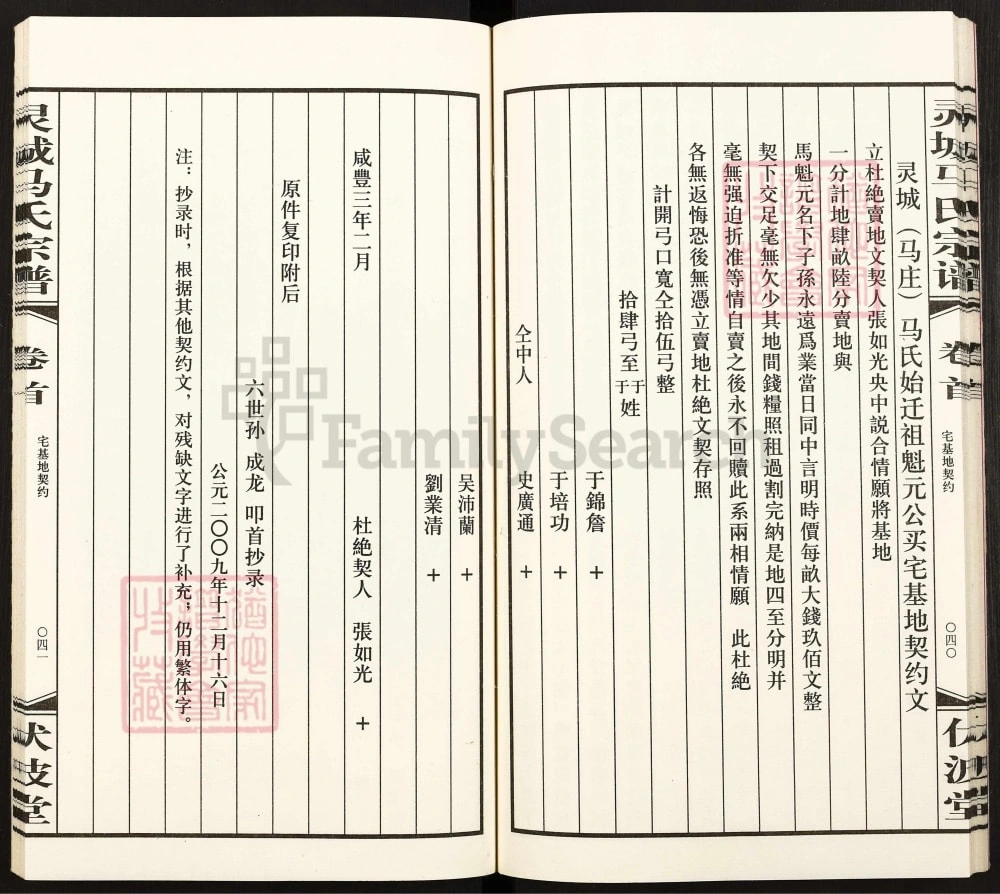 灵城马氏宗谱
卷首
宅基地契约
〇四〇
伏波堂
灵城（马庄）马氏始迁祖魁元公买宅基地契约文
立杜絶賣地文契人張如光央中説合情願將基地
一分計地肆畝陸分賣地與
馬魁元名下子孫永遠爲業當日同中言明時價每畝大錢玖佰文整
契下交足毫無欠少其地間錢糧照租過割完納是地四至分明并
毫無强迫折准等情自賣之後永不回贖此系兩相情願 此杜絶
各無返悔恐後無憑立賣地杜絶文契存照
計開弓口寬仝拾伍弓整
拾肆弓至于于姓
于錦詹 十
于培功 十
仝中人 史廣通 十
吴沛蘭 十
劉業清 十
咸豐三年二月 杜絶契人 張如光 十
原件复印附后
六世孙 成龙 叩首抄录
公元二〇〇九年十二月十六日
注：抄录时，根据其他契约文，对残缺文字进行了补充；仍用繁体字。
灵城马氏宗谱
卷首
宅基地契约
〇四一
伏波堂
FamilySearch